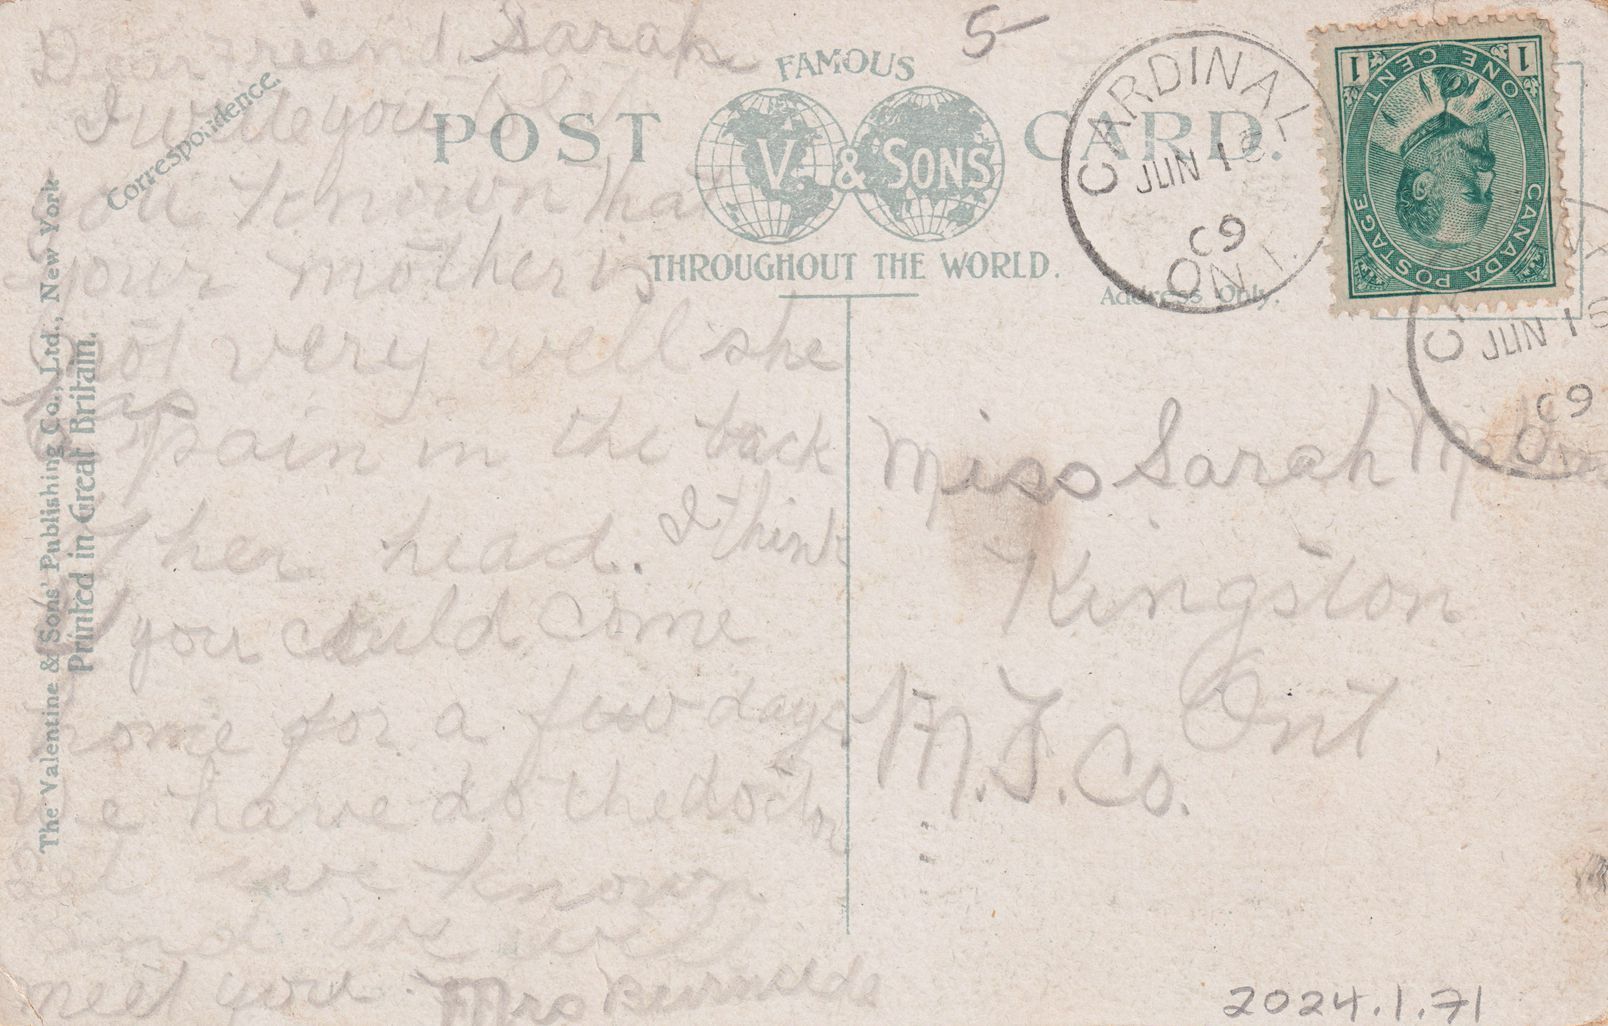 Dear Friend Sarah
I write you to let
you known that
your mother is
not very well she
has
pain in the back
of her head. I think
if you could come
home for a few days
We have do the doctor
Let we known
and we will
meet you. Mrs
Correspondence.
The Valentine & Sons' Publishing Co., Ltd., New York
Printed in Great Britain.
FAMOUS
POST CARD.
V. & SONS
THROUGHOUT THE WORLD.
Address Only.
5-
CARDINAL
JUN 16
09
ONT.
1 1
ONE CENT
CANADA POSTAGE
JUN 16
09
Miss Sarah
Kingston
Ont.
M.T.Co.
2024.1.71